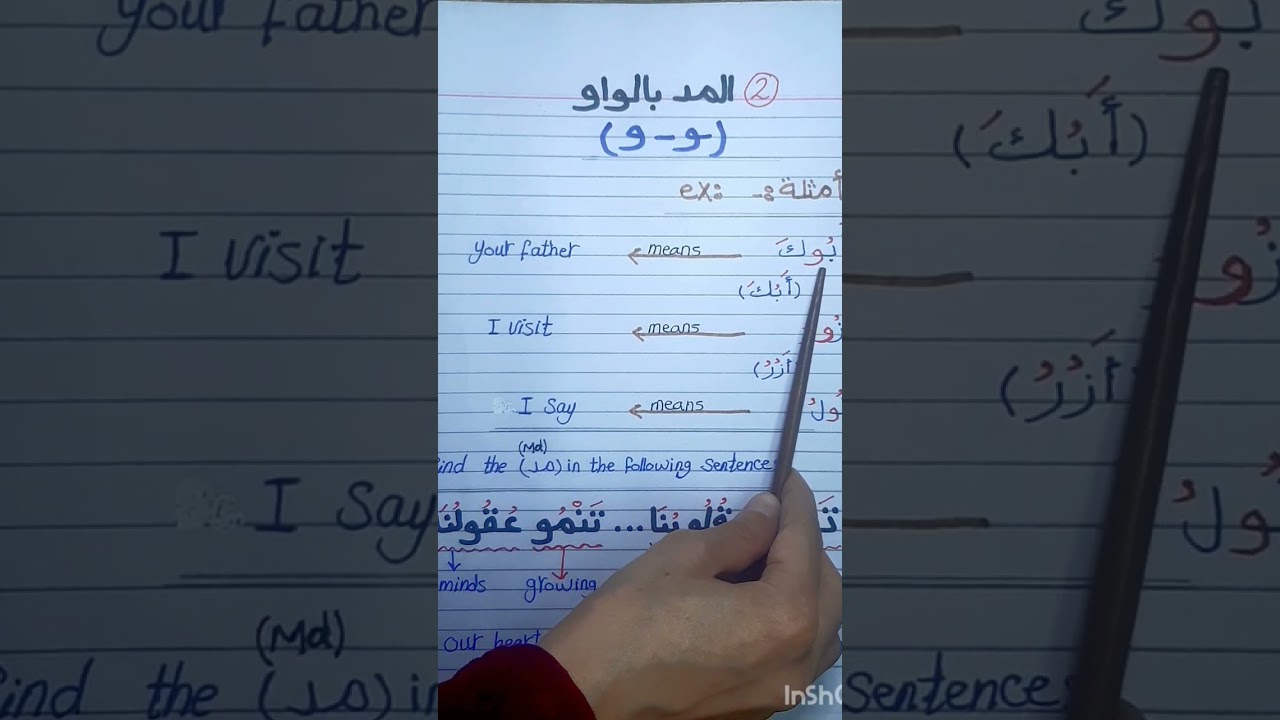 ② المد بالواو
(ـو - و)
أمثلة:- ex:
بُوكَ means your father
(أَبُكَ)
زُو means I visit
(أَزُرُ)
ُولُ means I say
(Md)
find the (مد) in the following sentence
قُلُوبُنَا... تَنْمُو عُقُولُنَا
minds growing
our heart
InSh